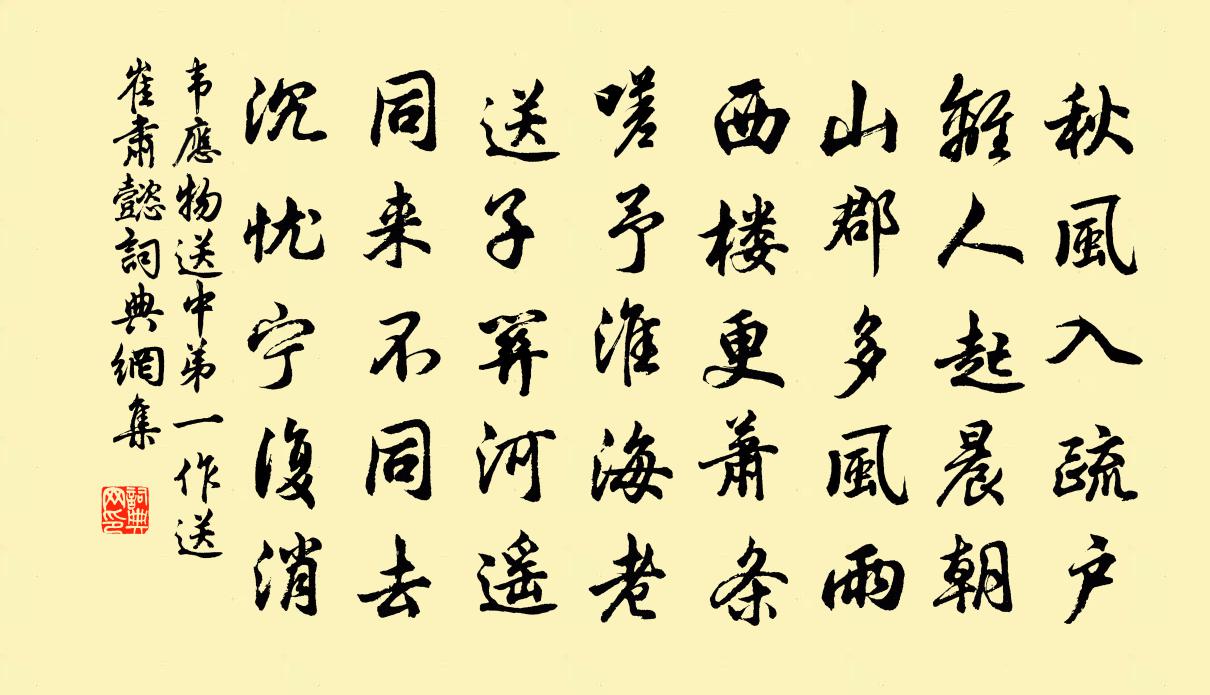 秋風入疏户
離人起晨朝
山郡多風雨
西楼更萧条
嗟予淮海老
送子關河遥
同来不同去
沉忧宁復消
韦應物送中弟一作送
崔肅懿詞典網集
詞典网印